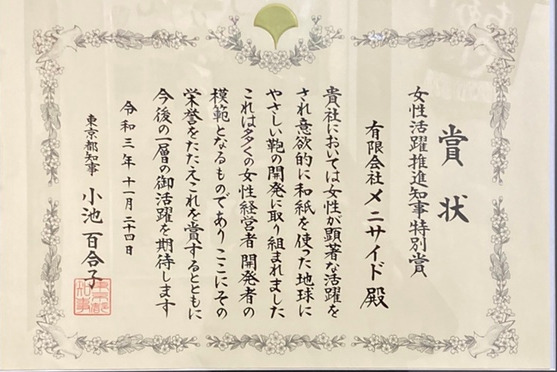 賞状
女性活躍推進知事特別賞
有限会社メニサイド殿
貴社においては女性が顕著な活躍を
され意欲的に和紙を使った地球に
やさしい鞄の開発に取り組まれました
これは多くの女性経営者 開発者の
模範となるものでありここにその
栄誉をたたえこれを賞するとともに
今後の一層の御活躍を期待します
令和三年十一月二十四日
東京都知事 小池百合子